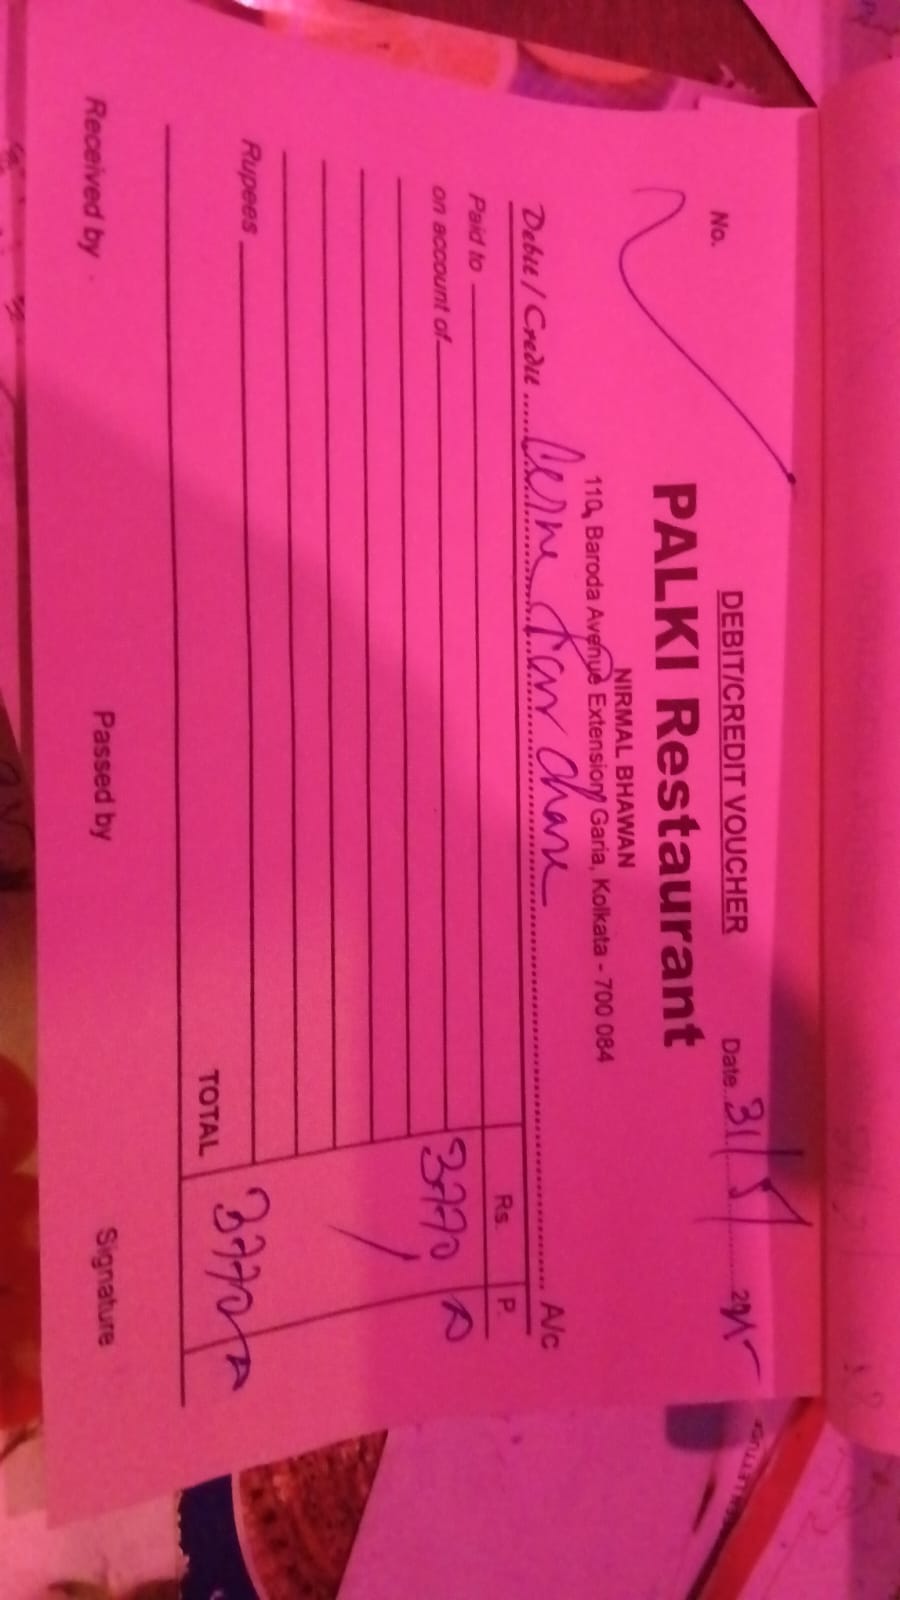 DEBIT/CREDIT VOUCHER
No.
Date 31/5
PALKI Restaurant
NIRMAL BHAWAN
110, Baroda Avenue Extension, Garia, Kolkata - 700 084
Debit / Credit A/c
Paid to Rs. P.
on account of 3770
Rupees
TOTAL 3770
Received by Passed by Signature